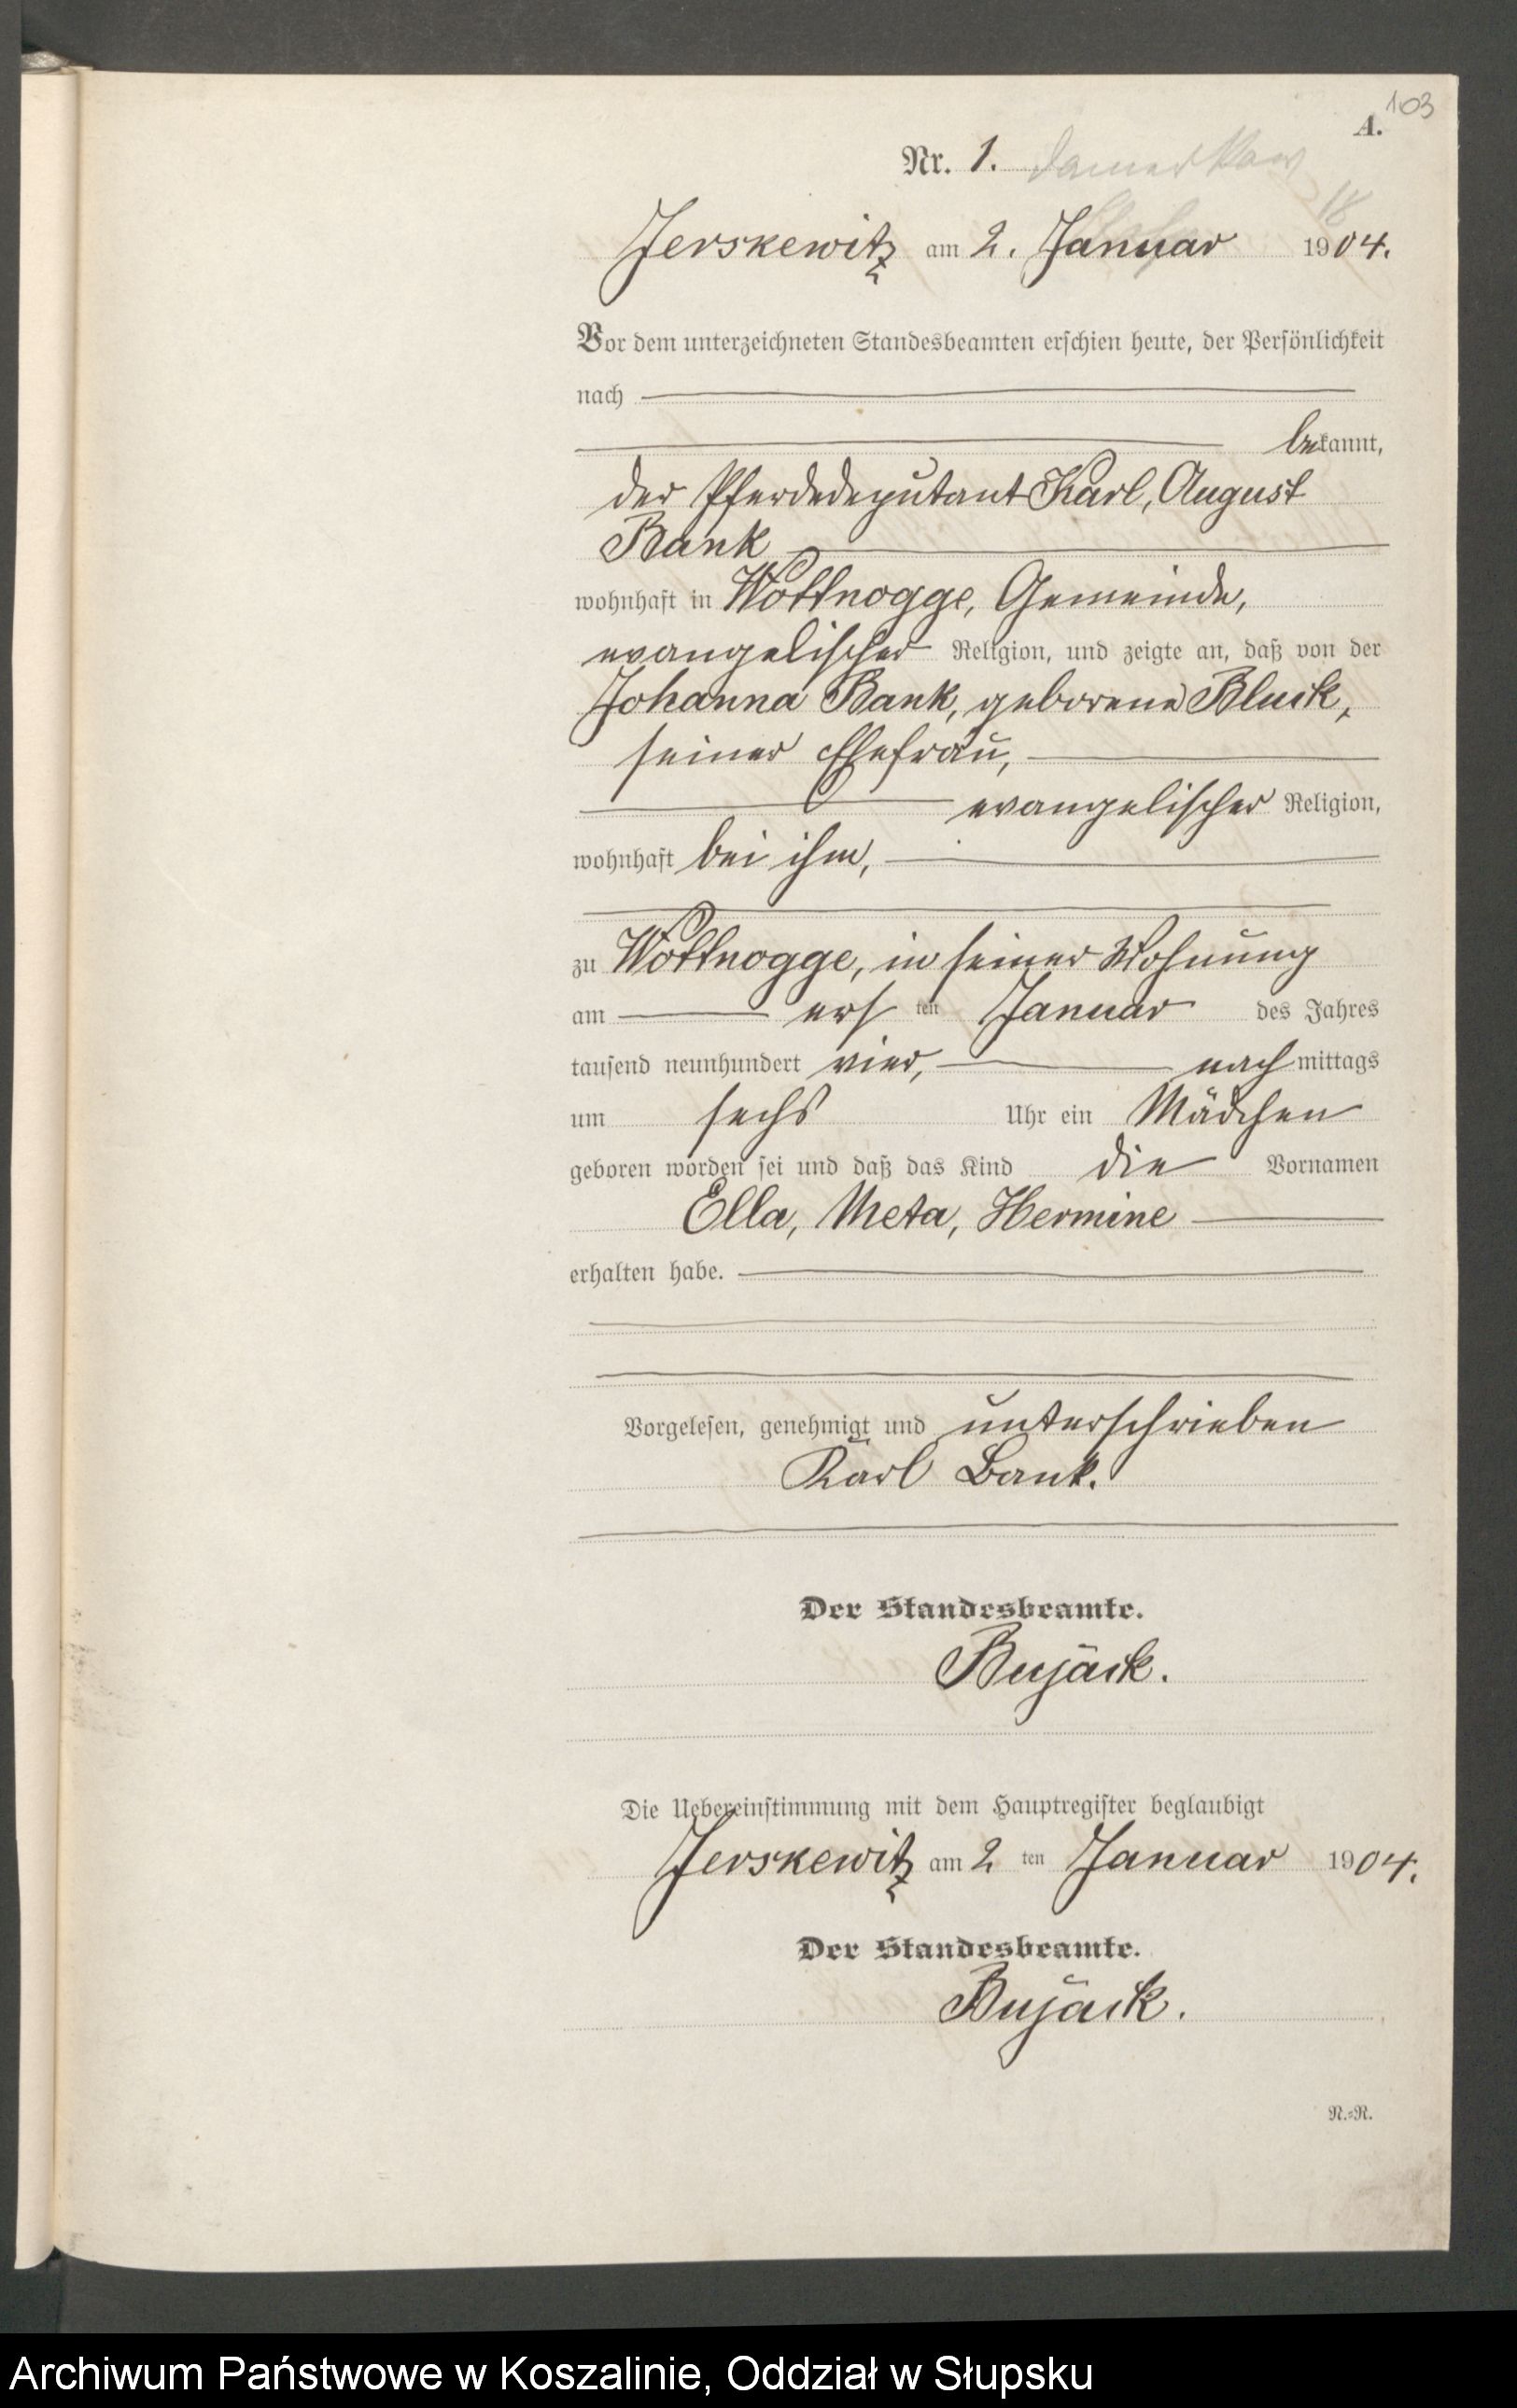 103
A.
Nr. 1. Damerkow
18
Jerskewitz am 2. Januar 1904.
Vor dem unterzeichneten Standesbeamten erschien heute, der Persönlichkeit
nach
bekannt,
der Pferdedeputant Karl, August
Bank
wohnhaft in Wottnogge, Gemeinde,
evangelischer Religion, und zeigte an, daß von der
Johanna Bank, geborene Bluck,
seiner Ehefrau,
evangelischer Religion,
wohnhaft bei ihm,
zu Wottnogge, in seiner Wohnung
am ersten Januar des Jahres
tausend neunhundert vier, nachmittags
um sechs Uhr ein Mädchen
geboren worden sei und daß das Kind die Vornamen
Ella, Meta, Hermine
erhalten habe.
Vorgelesen, genehmigt und unterschrieben
Karl Bank.
Der Standesbeamte.
Bujack.
Die Uebereinstimmung mit dem Hauptregister beglaubigt
Jerskewitz am 2ten Januar 1904.
Der Standesbeamte.
Bujack.
N.=R.
Archiwum Państwowe w Koszalinie, Oddział w Słupsku